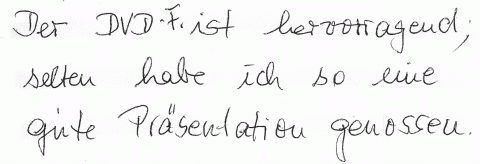 Der DVD-F. ist hervorragend;
selten habe ich so eine
gute Präsentation genossen.